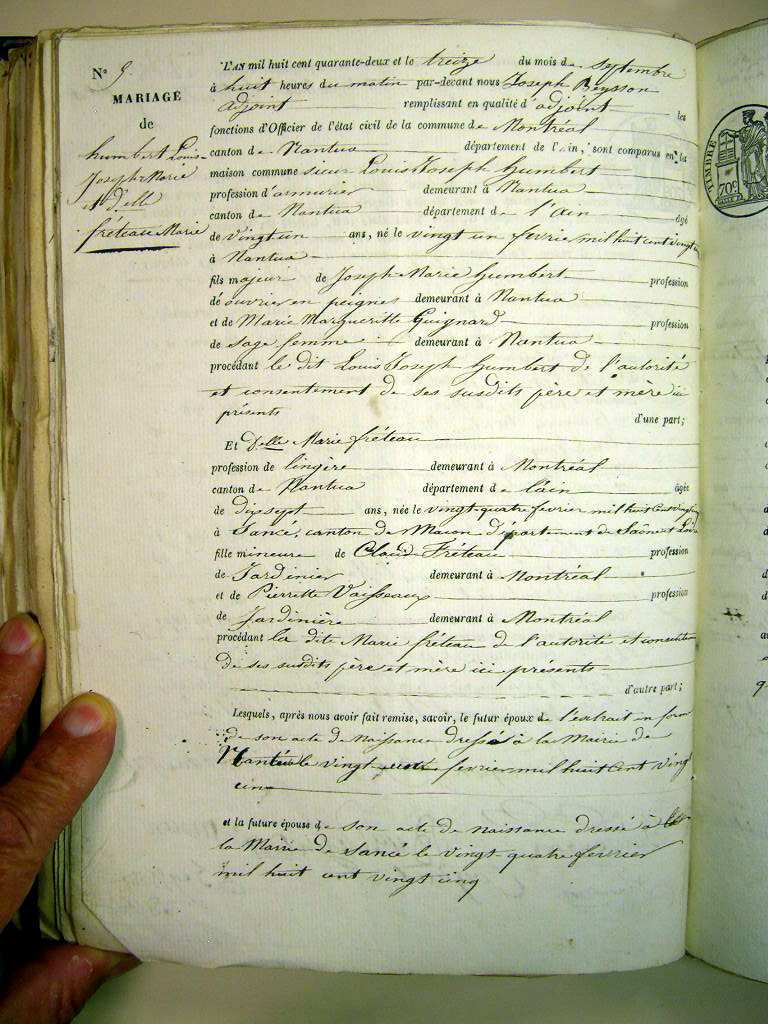 N° 9.
MARIAGE
de
humbert Louis-
Joseph Marie
et d'elle
fréteau Marie
L'AN mil huit cent quarante-deux et le treize du mois de septembre
à huit heures du matin par-devant nous Joseph Beysson
adjoint remplissant en qualité d'adjoint les
fonctions d'Officier de l'état civil de la commune de Montréal
canton de Nantua département de l'Ain, sont comparus en la
maison commune sieur Louis Joseph humbert
profession d'armurier demeurant à Nantua
canton de Nantua département de l'ain âgé
de vingt un ans, né le vingt un fevrier mil huit cent vingt un
à Nantua
fils majeur de Joseph Marie humbert profession
de ouvrier en peignes demeurant à Nantua
et de Marie Margueritte Guignard profession
de sage femme demeurant à Nantua
procédant le dit Louis Joseph humbert de l'autorité
et consentement de ses susdits père et mère ici
présents d'une part;
Et delle Marie fréteau
profession de lingère demeurant à Montréal
canton de Nantua département de l'ain âgée
de dix sept ans, née le vingt-quatre fevrier mil huit cent vingt cinq
à Sancé, canton de Macon département de Saône et Loire
fille mineure de Claude Fréteau profession
de Jardinier demeurant à Montréal
et de Pierrette Vaisseaux profession
de Jardinière demeurant à Montréal
procédant la dite Marie fréteau de l'autorité et consentem
de ses susdits père et mère ici présents
d'autre part;
Lesquels, après nous avoir fait remise, savoir, le futur époux de l'extrait en forme
de son acte de Naissance dressé à la Mairie de
Nantua le vingt fevrier mil huit cent vingt
un
et la future épouse de son acte de naissance dressé à
la Mairie de Sancé le vingt quatre fevrier
mil huit cent vingt cinq
TIMBRE
70c